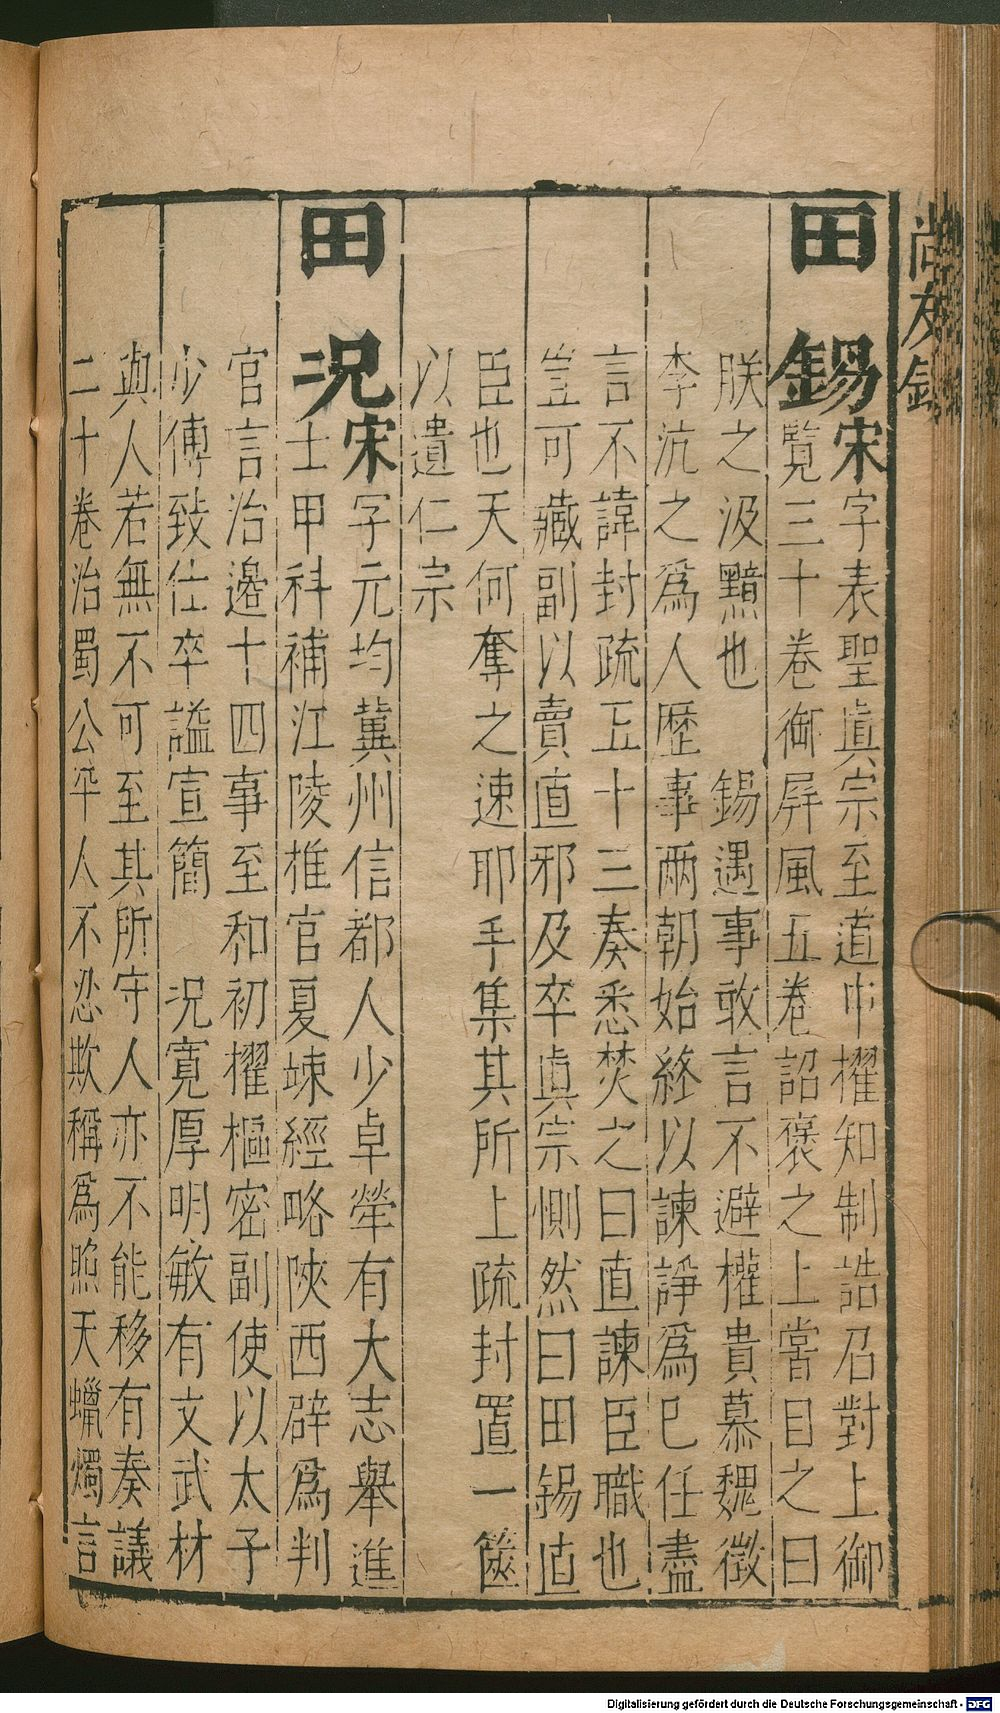 尚友録
田錫宋字表聖眞宗至道中擢知制誥召對上御
覽三十卷御屏風五卷詔褒之上嘗目之曰
朕之汲黯也 錫遇事敢言不避權貴慕魏徵
李沆之爲人歷事兩朝始終以諫諍爲已任盡
言不諱封疏五十三奏悉焚之曰直諫臣職也
豈可藏副以賣直邪及卒眞宗惻然曰田錫直
臣也天何奪之速耶手集其所上疏封置一篋
以遺仁宗
田况宋字元均冀州信都人少卓犖有大志舉進
士甲科補江陵推官夏竦經略陝西辟爲判
官言治邊十四事至和初擢樞密副使以太子
少傅致仕卒諡宣簡 况寛厚明敏有文武材
與人若無不可至其所守人亦不能移有奏議
二十卷治蜀公平人不忍欺稱爲照天蠟燭言
Digitalisierung gefördert durch die Deutsche Forschungsgemeinschaft - DFG